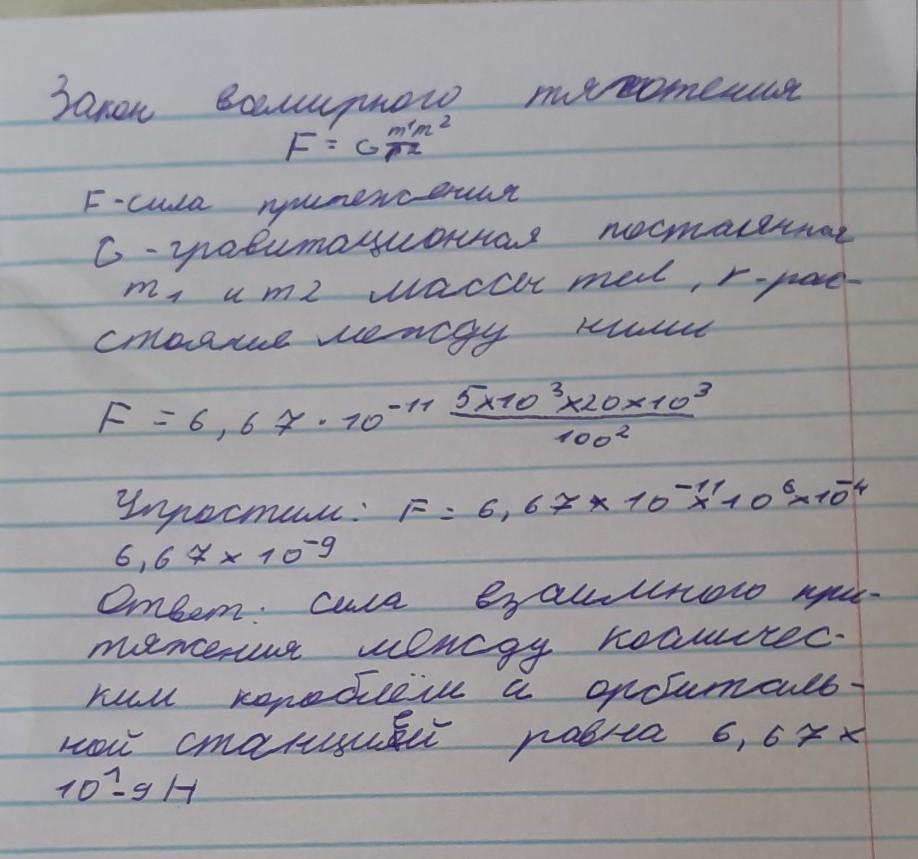 Закон всемирного тяготения
F = G m1m2/r2
F-сила притежения
G-гравитационная постоянная
m1 и m2 массы тел, r-рас-
стояние между ними
F = 6,67 · 10^-11 5×10^3×20×10^3/100^2
Упростим: F = 6,67 × 10^-11 × 10^6 × 10^-4
6,67 × 10^-9
Ответ: сила взаимного при-
тяжения между космичес-
ким кораблём и орбиталь-
ной станцией равна 6,67 ×
10^1-9 Н